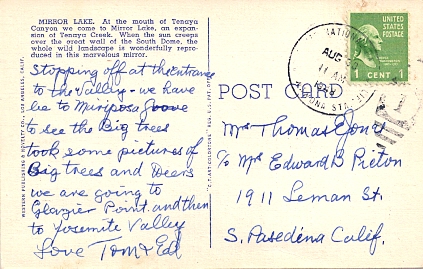 MIRROR LAKE. At the mouth of Tenaya
Canyon we come to Mirror Lake, an expan-
sion of Tenaya Creek. When the sun creeps
over the great wall of the South Dome, the
whole wild landscape is wonderfully repro-
duced in this marvelous mirror.
Stopping off at the entrance
to the Valley - we have
to Mariposa Grove
to see the Big trees
took some pictures of
Big trees and Deers
we are going to
Glazier Point and then
to Yosemite Valley
Love Tom & Ed
POST CARD
AUG
11 AM
UNITED
STATES
POSTAGE
1 CENT 1
Mrs Thomas
c/o Mrs Edward B
1911 Leman St.
S. Pasedena Calif.